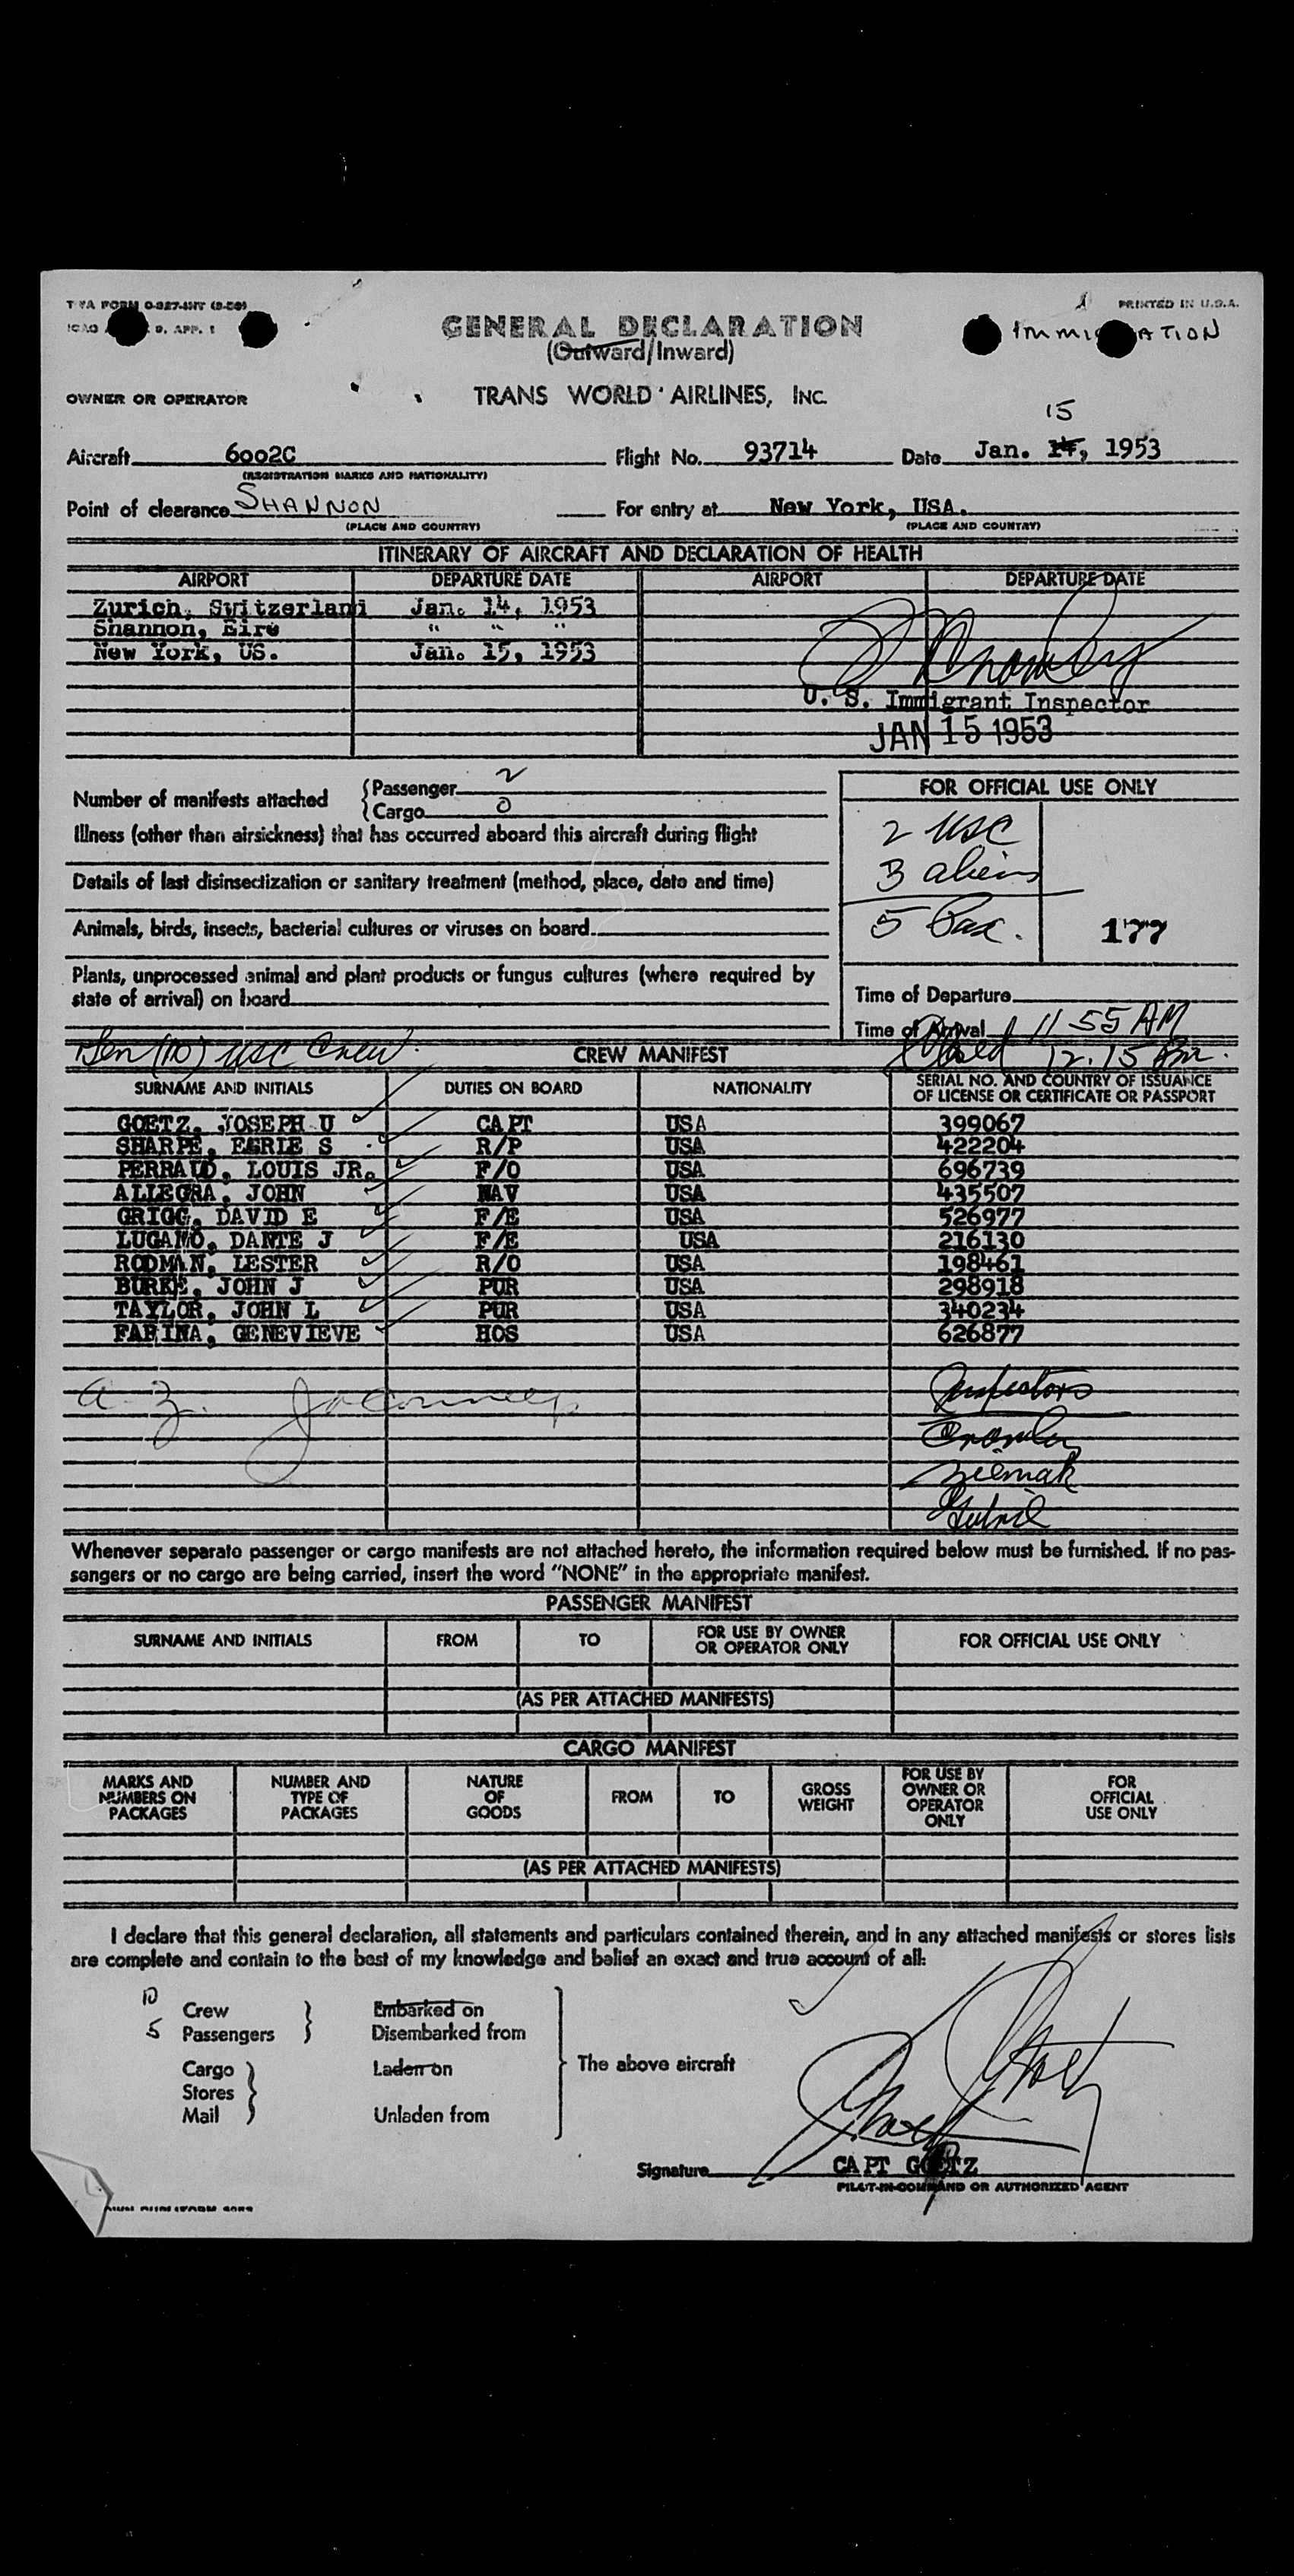 TWA FORM O-327-INT
PRINTED IN U.S.A.
ICAO 9, APP. 1
GENERAL DECLARATION
(Outward/Inward)
OWNER OR OPERATOR
TRANS WORLD AIRLINES, INC.
15
Aircraft 6002C Flight No. 93714 Date Jan. 14, 1953
(REGISTRATION MARKS AND NATIONALITY)
Point of clearance SHANNON For entry at New York, USA.
(PLACE AND COUNTRY) (PLACE AND COUNTRY)
ITINERARY OF AIRCRAFT AND DECLARATION OF HEALTH
AIRPORT DEPARTURE DATE AIRPORT DEPARTURE DATE
Zurich, Switzerland Jan. 14, 1953
Shannon, Eire " " "
New York, US. Jan. 15, 1953
U. S. Immigrant Inspector
JAN 15 1953
Number of manifests attached {Passenger 2
{Cargo 0
FOR OFFICIAL USE ONLY
Illness (other than airsickness) that has occurred aboard this aircraft during flight
2 USC
Details of last disinsectization or sanitary treatment (method, place, date and time)
3 aliens
Animals, birds, insects, bacterial cultures or viruses on board.
5 Pax. 177
Plants, unprocessed animal and plant products or fungus cultures (where required by
state of arrival) on board
Time of Departure
Time of Arrival 11 55 AM
Ten (10) USC Crew. CREW MANIFEST 12.15 Pm.
SURNAME AND INITIALS DUTIES ON BOARD NATIONALITY SERIAL NO. AND COUNTRY OF ISSUANCE
OF LICENSE OR CERTIFICATE OR PASSPORT
GOETZ, JOSEPH U CAPT USA 399067
SHARPE, EERIE S R/P USA 422204
PERRAUD, LOUIS JR. F/O USA 696739
ALLEGRA, JOHN NAV USA 435507
GRIGG, DAVID E F/E USA 526977
LUGANO, DANTE J F/E USA 216130
RODMAN, LESTER R/O USA 198461
BURKE, JOHN J PUR USA 298918
TAYLOR, JOHN L PUR USA 340234
FARINA, GENEVIEVE HOS USA 626877
Inspectors
Whenever separate passenger or cargo manifests are not attached hereto, the information required below must be furnished. If no pas-
sengers or no cargo are being carried, insert the word "NONE" in the appropriate manifest.
PASSENGER MANIFEST
SURNAME AND INITIALS FROM TO FOR USE BY OWNER
OR OPERATOR ONLY FOR OFFICIAL USE ONLY
(AS PER ATTACHED MANIFESTS)
CARGO MANIFEST
MARKS AND
NUMBERS ON
PACKAGES
NUMBER AND
TYPE OF
PACKAGES
NATURE
OF
GOODS
FROM
TO
GROSS
WEIGHT
FOR USE BY
OWNER OR
OPERATOR
ONLY
FOR
OFFICIAL
USE ONLY
(AS PER ATTACHED MANIFESTS)
I declare that this general declaration, all statements and particulars contained therein, and in any attached manifests or stores lists
are complete and contain to the best of my knowledge and belief an exact and true account of all:
10 Crew Embarked on
5 Passengers Disembarked from
Cargo Laden on The above aircraft
Stores
Mail Unladen from
Signature CAPT GOETZ
PILOT-IN-COMMAND OR AUTHORIZED AGENT